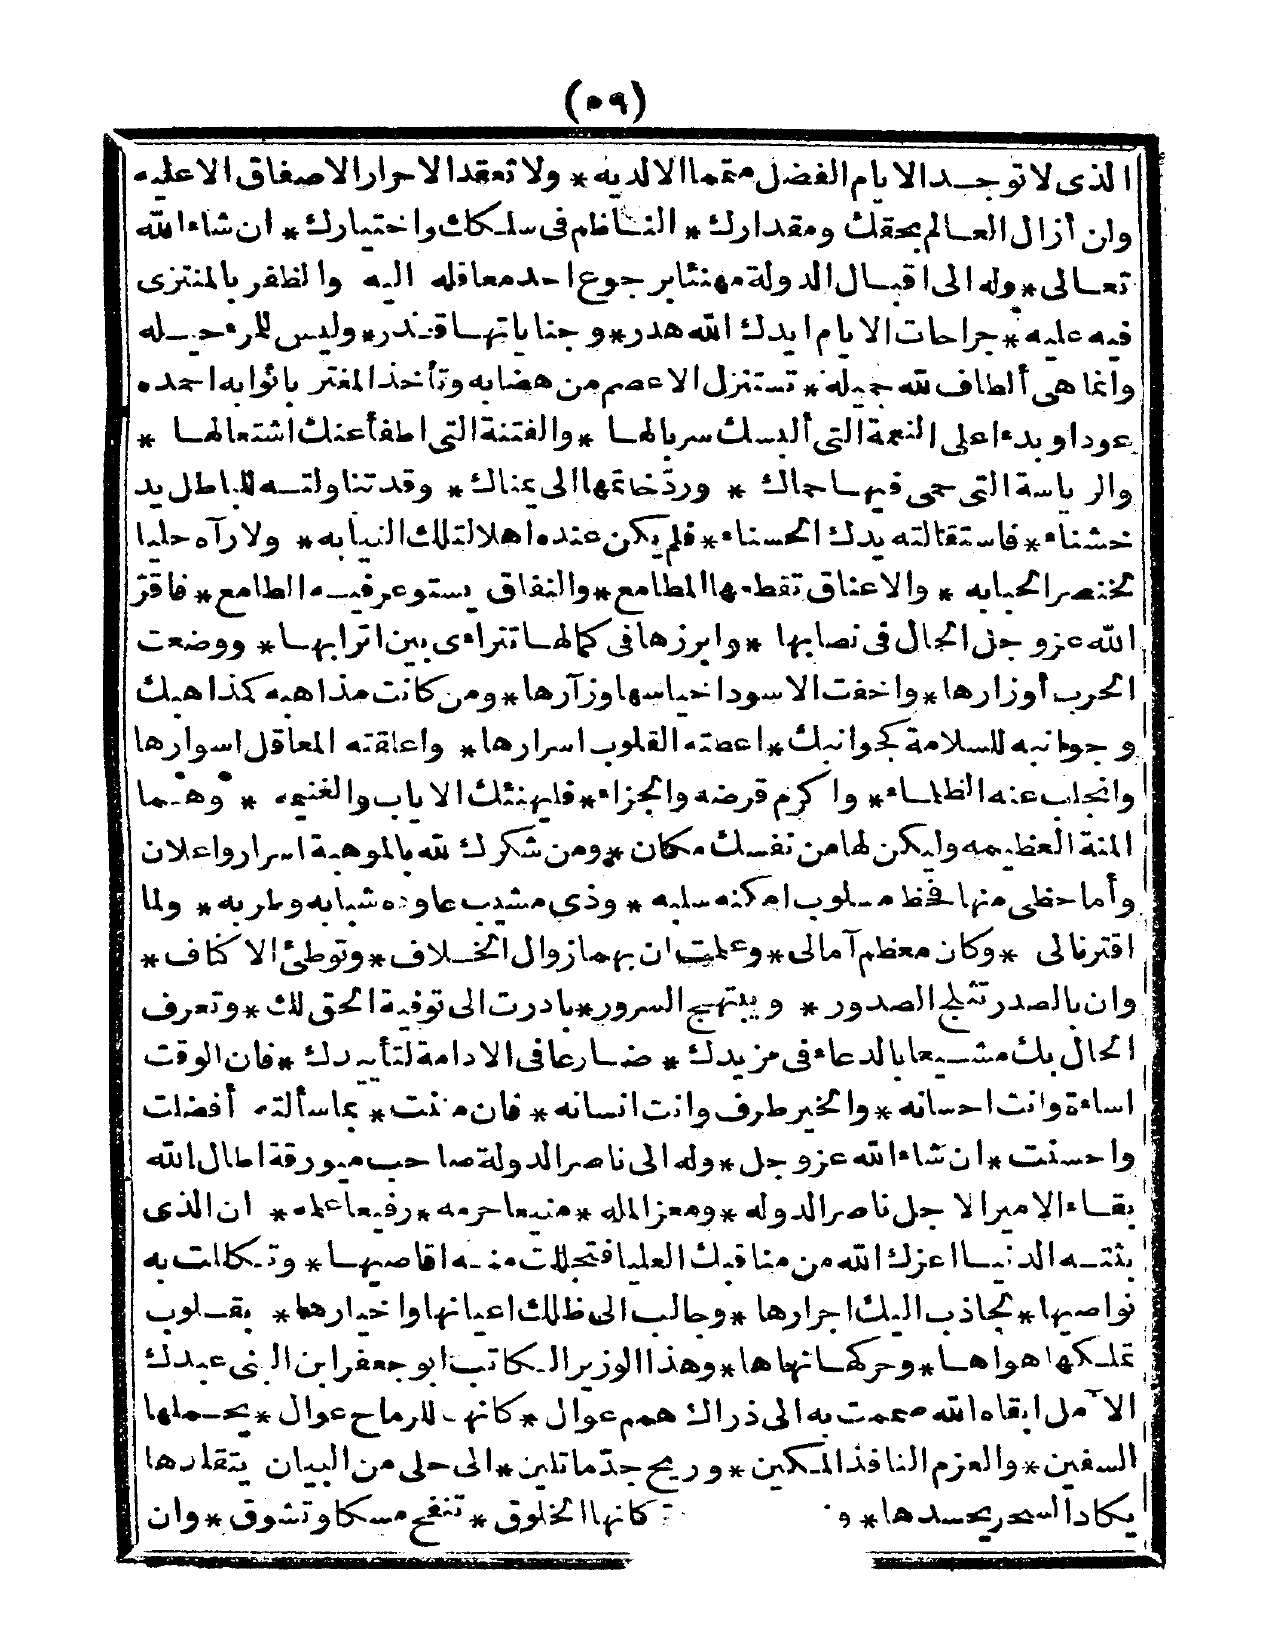 (٥٩)
الذى لا توجد الايام الفضل متمما الالديه * ولا تعقد الاحرار الاصفاق الاعليه
وان أزال العالم بحقك ومقدارك * الناظم فى سلكك واختيارك * ان شاء الله
تعالى * وله الى اقبال الدولة مهنئا برجوع احد معاقله اليه والظفر بالمنتزى
فيه عليه * جراحات الايام ايدك الله هدر * وجناياتها قدر * وليس للمرء حيله
وانما هى ألطاف لله جميله * تستنزل الاعصم من هضابه وتأخذ المغتر باثوابه احمده
عودا وبدءا على النعمة التى ألبسك سربالها * والفتنة التى اطفأ عنك اشتعالها *
والرياسة التى حمى فيها حماك * وردّ خاتمها الى يمناك * وقد تناولته للباطل يد
خشناء * فاستقالته يدك الحسناء * فلم يكن عنده اهلا لتلك النيابه * ولا رآه حليا
لخنصر الحبابه * والاعناق تقطعها المطامع * والنفاق يستوعر فيه الطامع * فاقرّ
الله عزوجل الحال فى نصابها * وابرزها فى كمالها تتراءى بين اترابها * ووضعت
الحرب أوزارها * واخفت الاسود اخياسها وزآرها * ومن كانت مذاهبه كمذاهبك
وجوانبه للسلامة كجوانبك * اعطته القلوب اسرارها * واعلقته المعاقل اسوارها
وانجلب عنه الظلماء * واكرم قرضه والجزاء * فليهنئك الاياب والغنيمه * وهنما
المنة العظيمه وليكن لها من نفسك مكان * ومن شكرك لله بالموهبة اسرار واعلان
وأما حظى منها فحظ مسلوب امكنه سلبه * وذى مشيب عاوده شبابه وطربه * ولما
اقترنا لى * وكان معظم آمالى * وعلمت ان بهما زوال الخلاف * وتوطئ الاكناف *
وان بالصدر تثلج الصدور * ويبتهج السرور * بادرت الى توفية الحق لك * وتعرف
الحال بك مشيعا بالدعاء فى مزيدك * ضارعا فى الادامة لتأييدك * فان الوقت
اساءة وانت احسانه * والخير طرف وانت انسانه * فان مننت * بما سألته أفضلت
واحسنت * ان شاء الله عزوجل * وله الى ناصر الدولة صاحب ميورقة اطال الله
بقاء الامير الاجل ناصر الدوله * ومعز المله * منيعا حرمه * رفيعا علمه * ان الذى
بثته الدنيا اعزك الله من مناقبك العليا فتجللت منه اقاصيها * وتكللت به
نواصيها * لجاذب اليك اجرارها * وجالب الى ظلك اعيانها واخيارها * بقلوب
تملكها هواها * وحركها نهاها * وهذا الوزير الكاتب ابو جعفر ابن البنى عبدك
الآمل ابقاه الله صممت به الى ذراك همم عوال * كأنها للرماح عوال * يحملها
السفين * والعزم النافذ المكين * وريح جدّ ما تلين * الى حلى من البيان يتقلدها
يكاد السحر يحسدها * و كانها الخلوق * تنفح مسكا وتشوق * وان